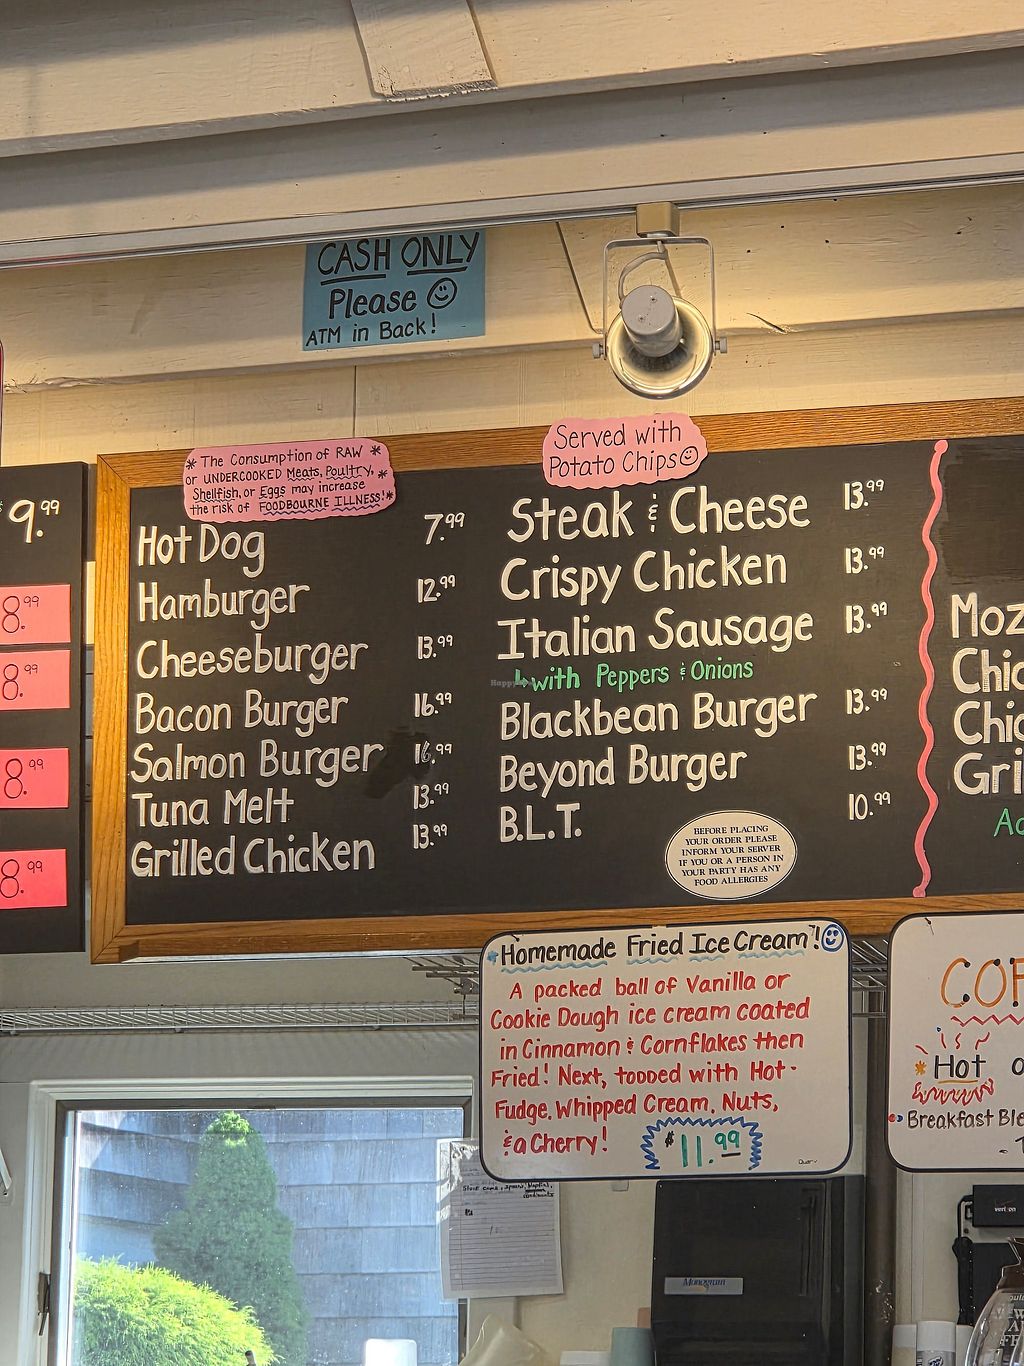 CASH ONLY
Please
ATM in Back!
9.99
8.99
8.99
8.99
8.99
* The Consumption of RAW *
or UNDERCOOKED Meats, Poultry, *
Shellfish, or Eggs may increase
the risk of FOODBOURNE ILLNESS! *
Hot Dog 7.99
Hamburger 12.99
Cheeseburger 13.99
Bacon Burger 16.99
Salmon Burger 16.99
Tuna Melt 13.99
Grilled Chicken 13.99
Served with
Potato Chips
Steak & Cheese 13.99
Crispy Chicken 13.99
Italian Sausage 13.99
↳ with Peppers & Onions
Blackbean Burger 13.99
Beyond Burger 13.99
B.L.T. 10.99
BEFORE PLACING
YOUR ORDER PLEASE
INFORM YOUR SERVER
IF YOU OR A PERSON IN
YOUR PARTY HAS ANY
FOOD ALLERGIES
Moz
Chic
Chic
Gri
Ad
*Homemade Fried Ice Cream!
A packed ball of Vanilla or
Cookie Dough ice cream coated
in Cinnamon & Cornflakes then
Fried! Next, topped with Hot-
Fudge, Whipped Cream, Nuts,
& a Cherry! $11.99
COF
* Hot o
Breakfast Ble
verizon
Monogram